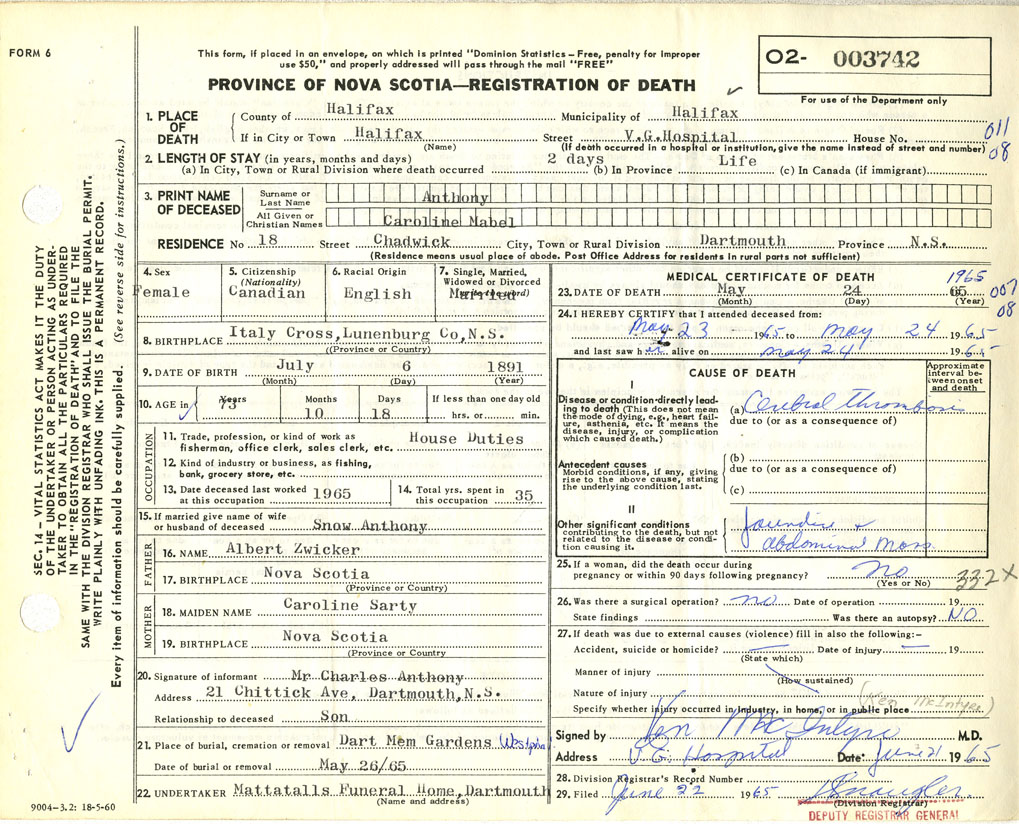 FORM 6
This form, if placed in an envelope, on which is printed "Dominion Statistics – Free, penalty for improper
use $50," and properly addressed will pass through the mail "FREE"
O2- 003742
For use of the Department only
PROVINCE OF NOVA SCOTIA—REGISTRATION OF DEATH
1. PLACE OF DEATH
County of Halifax Municipality of Halifax
If in City or Town Halifax Street V.G.Hospital House No. 011
(Name) (If death occurred in a hospital or institution, give the name instead of street and number) 08
2. LENGTH OF STAY (in years, months and days) 2 days Life
(a) In City, Town or Rural Division where death occurred (b) In Province (c) In Canada (if immigrant)
3. PRINT NAME OF DECEASED
Surname or Last Name Anthony
All Given or Christian Names Caroline Mabel
RESIDENCE No 18 Street Chadwick City, Town or Rural Division Dartmouth Province N.S.
(Residence means usual place of abode. Post Office Address for residents in rural parts not sufficient)
4. Sex Female
5. Citizenship (Nationality) Canadian
6. Racial Origin English
7. Single, Married, Widowed or Divorced Married
8. BIRTHPLACE Italy Cross,Lunenburg Co,N.S.
(Province or Country)
9. DATE OF BIRTH July 6 1891
(Month) (Day) (Year)
10. AGE in Years 73 Months 10 Days 18 If less than one day old hrs. or min.
OCCUPATION
11. Trade, profession, or kind of work as fisherman, office clerk, sales clerk, etc. House Duties
12. Kind of industry or business, as fishing, bank, grocery store, etc.
13. Date deceased last worked at this occupation 1965
14. Total yrs. spent in this occupation 35
15. If married give name of wife or husband of deceased Snow Anthony
FATHER
16. NAME Albert Zwicker
17. BIRTHPLACE Nova Scotia
(Province or Country)
MOTHER
18. MAIDEN NAME Caroline Sarty
19. BIRTHPLACE Nova Scotia
(Province or Country
20. Signature of informant Mr Charles Anthony
Address 21 Chittick Ave, Dartmouth,N.S.
Relationship to deceased Son
21. Place of burial, cremation or removal Dart Mem Gardens
Date of burial or removal May 26/65
22. UNDERTAKER Mattatalls Funeral Home,Dartmouth
(Name and address)
MEDICAL CERTIFICATE OF DEATH 1965
23. DATE OF DEATH May 24 65 007
(Month) (Day) (Year) 08
24. I HEREBY CERTIFY that I attended deceased from:
May 23 1965 to May 24 1965
and last saw her alive on May 24 1965
CAUSE OF DEATH
Approximate interval between onset and death
I
Disease or condition directly leading to death (This does not mean the mode of dying, e.g., heart failure, asthenia, etc. It means the disease, injury, or complication which caused death.)
(a) Cerebral thrombosis
due to (or as a consequence of)
Antecedent causes
Morbid conditions, if any, giving rise to the above cause, stating the underlying condition last.
(b)
due to (or as a consequence of)
(c)
II
Other significant conditions contributing to the death, but not related to the disease or condition causing it.
Jaundice +
abdominal Mass
25. If a woman, did the death occur during
pregnancy or within 90 days following pregnancy? No 332X
(Yes or No)
26. Was there a surgical operation? no Date of operation 19
State findings Was there an autopsy? NO
27. If death was due to external causes (violence) fill in also the following:–
Accident, suicide or homicide? Date of injury 19
(State which)
Manner of injury
(How sustained)
Nature of injury (Ken McIntyre)
Specify whether injury occurred in industry, in home, or in public place
Signed by Ken McIntyre M.D.
Address V.G. Hospital Date June 21 1965
28. Division Registrar's Record Number
29. Filed June 22 1965
(Division Registrar)
DEPUTY REGISTRAR GENERAL
SEC. 14 – VITAL STATISTICS ACT MAKES IT THE DUTY
OF THE UNDERTAKER OR PERSON ACTING AS UNDER-
TAKER TO OBTAIN ALL THE PARTICULARS REQUIRED
IN THE "REGISTRATION OF DEATH" AND TO FILE THE
SAME WITH THE DIVISION REGISTRAR WHO SHALL ISSUE THE BURIAL PERMIT.
WRITE PLAINLY WITH UNFADING INK. THIS IS A PERMANENT RECORD.
Every item of information should be carefully supplied. (See reverse side for instructions.)
9004-3.2: 18-5-60